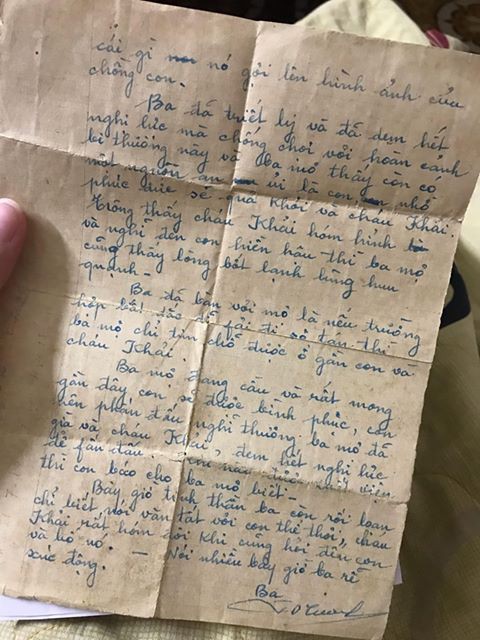 cái gì nó gợi lên hình ảnh của
chồng con.
Ba đã triết lý và đã đem hết
nghị lực mà chống chọi với hoàn cảnh
bi thương này và ba mợ thấy còn có
một nguồn an ủi là con nhỏ
phúc của Khôi và cháu Khải.
Trông thấy cháu Khải hóm hỉnh
và nghĩ đến con hiền hậu thì ba mợ
cũng thấy lòng bớt lạnh lùng hưu
quạnh -
Ba đã bàn với mợ là nếu trường
hợp bất đắc dĩ fải đi sơ tán thì
ba mợ chỉ tìm chỗ được ở gần con và
cháu Khải.
Ba mợ đang cầu và rất mong
gần đây con sẽ được bình phục, con
nên phấn đấu nghĩ thương ba mợ đã
già và cháu Khải, đem hết nghị lực
để fấn đấu
thì con báo cho ba mợ biết -
Bây giờ tinh thần ba còn rối loạn
chỉ biết nói vắn tắt với con thế thôi, cháu
Khải rất hóm đôi khi cũng hỏi đến con
và bố nó. - Nói nhiều bây giờ ba rễ
xúc động.
Ba